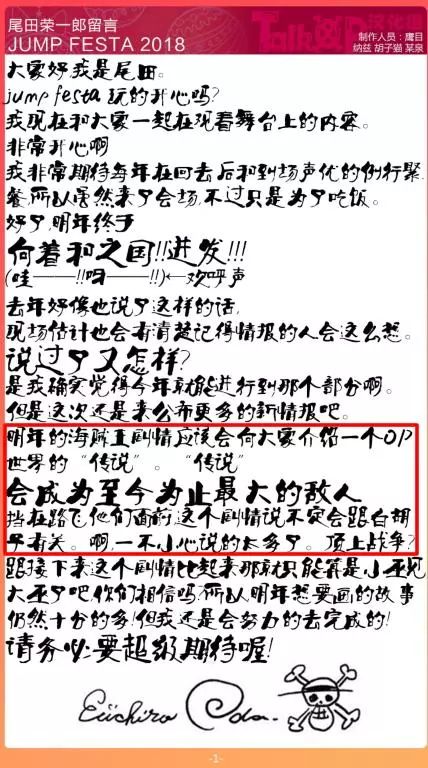 尾田荣一郎留言
JUMP FESTA 2018
TalkOP汉化组
制作人员：鹰目
纳兹 胡子猫 某泉
大家好我是尾田。
jump festa 玩的开心吗?
我现在和大家一起在观看舞台上的内容。
非常开心啊
我非常期待每年在回去后和到场声优的例行聚
餐,所以虽然来了会场,不过只是为了吃饭。
好了,明年终于
向着和之国!!进发!!!
(哇——!!呀——!!)←欢呼声
去年好像也说了这样的话,
现场估计也会有清楚记得情报的人会这么想。
说过了又怎样?
是我确实觉得今年就能进行到那个部分啊。
但是这次还是来公布更多的新情报吧。
明年的海贼王剧情应该会向大家介绍一个OP
世界的“传说”。“传说”
会成为至今为止最大的敌人
挡在路飞他们面前,这个剧情说不定会跟白胡
子有关。啊,一不小心说的太多了。顶上战争?
跟接下来这个剧情比起来那就只能算是小巫见
大巫了吧,你们相信吗,所以明年想要画的故事
仍然十分的多!但我还是会努力的去完成的!
请务必要超级期待喔!
Eiichiro Oda
-1-